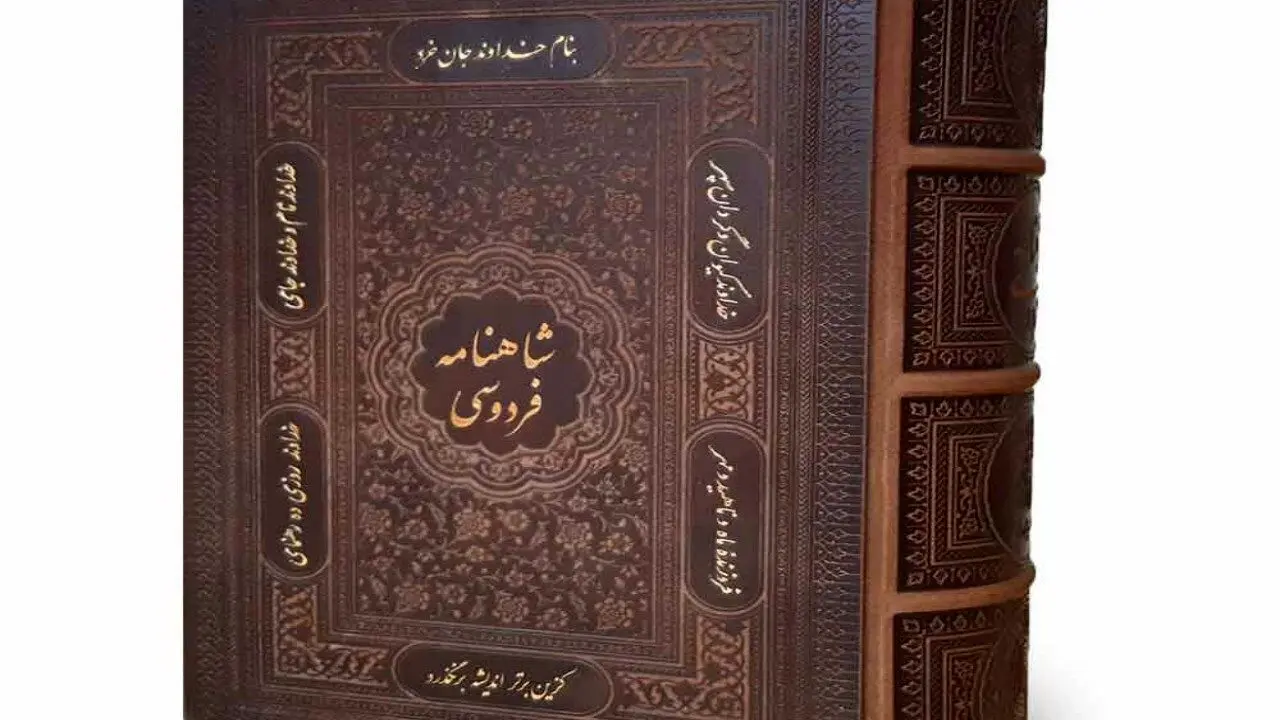 بنام خداوند جان خرد
کزین برتر اندیشه برنگذرد
خداوند نام و خداوند جای
خداوند روزی ده رهنمای
خداوند کیوان و گردان سپهر
فروزنده ماه و ناهید و مهر
شاهنامه
فردوسی